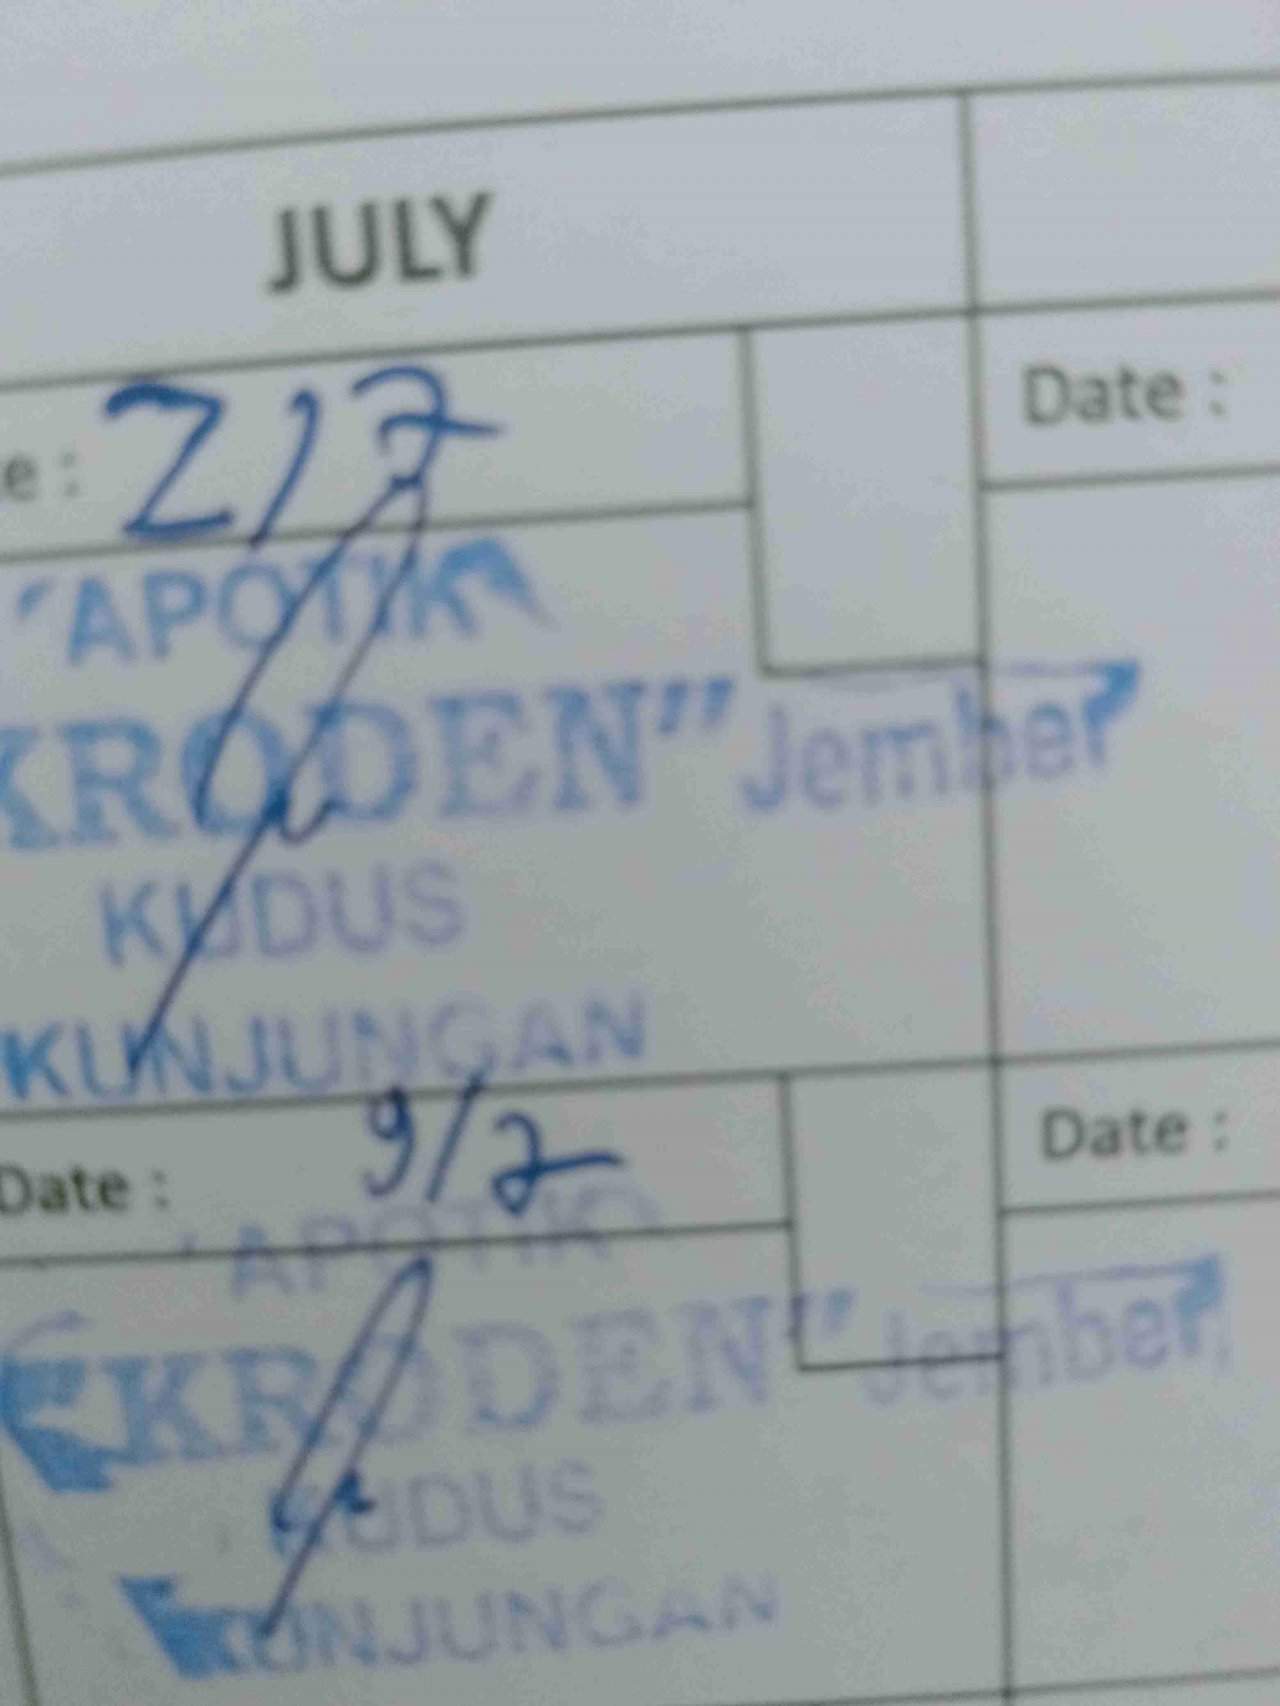 JULY
e : 2/7
Date :
"APOTIK
KRODEN" Jember
KUDUS
KUNJUNGAN
Date : 9/7
Date :
"APOTIK
KRODEN" Jember
KUDUS
KUNJUNGAN